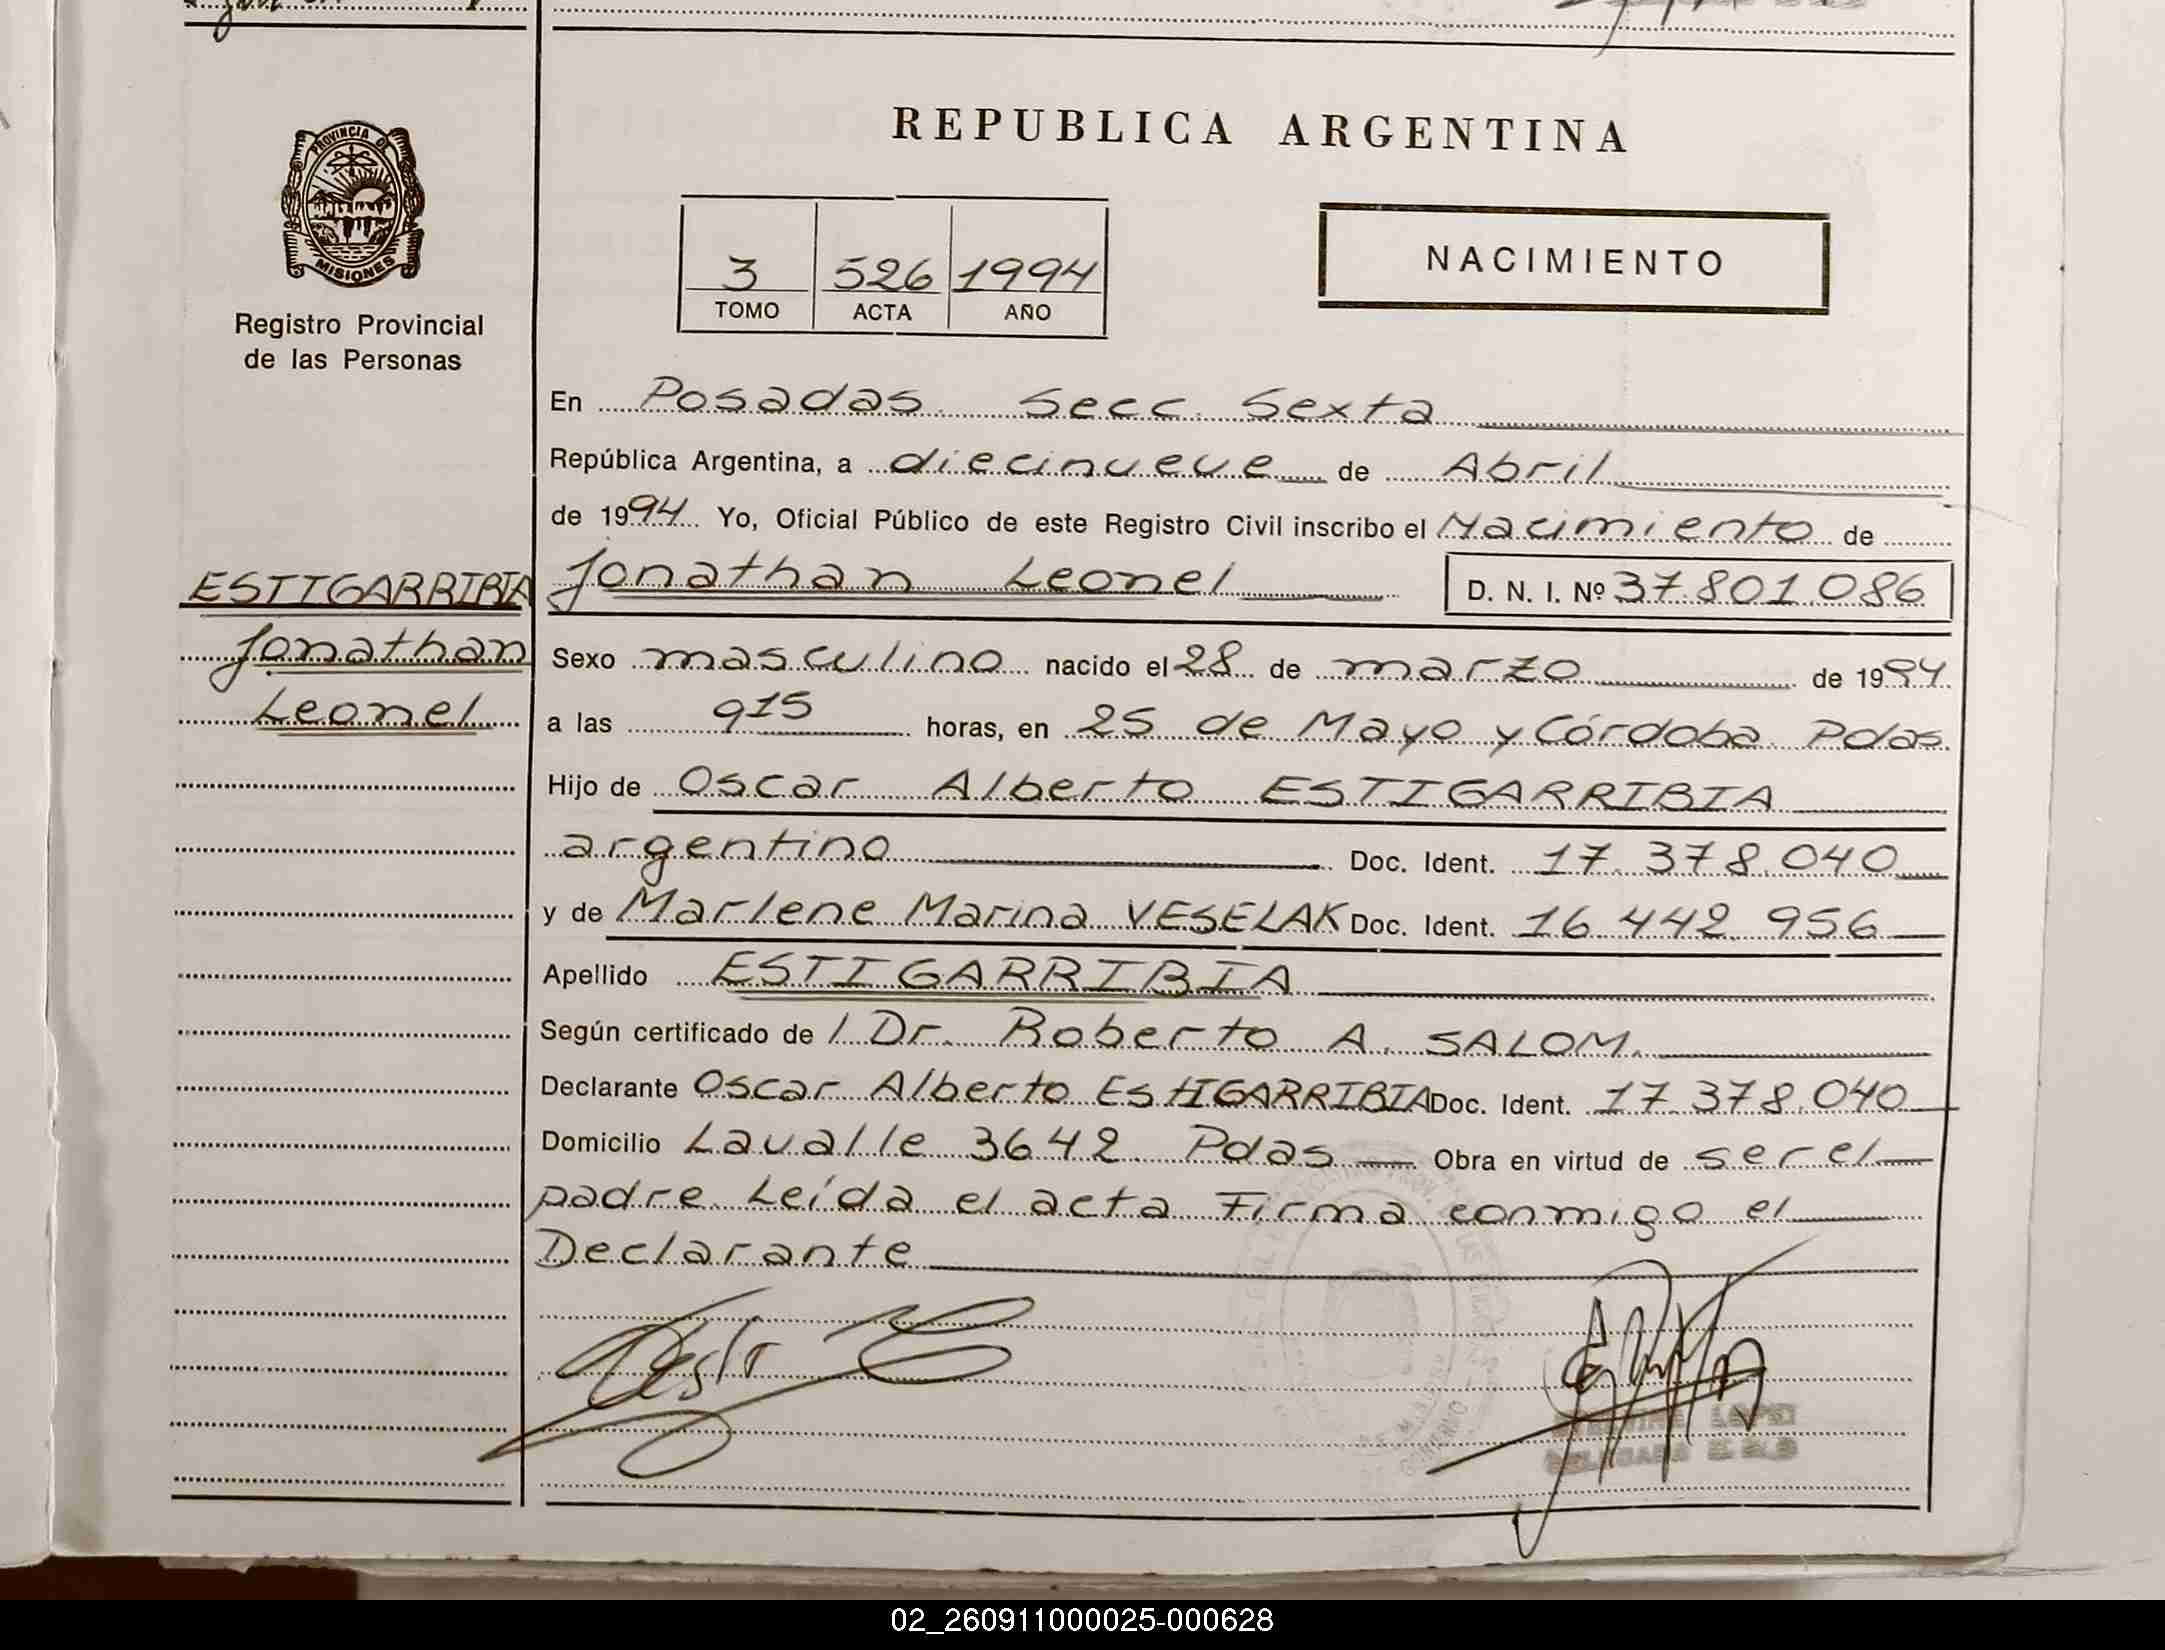 REPUBLICA ARGENTINA
PROVINCIA DE
MISIONES
Registro Provincial
de las Personas
3 526 1994
TOMO ACTA AÑO
NACIMIENTO
ESTIGARRIBIA
Jonathan
Leonel
En Posadas Secc. Sexta
República Argentina, a diecinueve de Abril
de 1994 Yo, Oficial Público de este Registro Civil inscribo el Nacimiento de
Jonathan Leonel D. N. I. Nº 37.801.086
Sexo masculino nacido el 28 de marzo de 1994
a las 915 horas, en 25 de Mayo y Córdoba Pdas
Hijo de Oscar Alberto ESTIGARRIBIA
argentino Doc. Ident. 17.378.040
y de Marlene Marina VESELAK Doc. Ident. 16.442.956
Apellido ESTIGARRIBIA
Según certificado de / Dr. Roberto A. SALOM.
Declarante Oscar Alberto ESTIGARRIBIA Doc. Ident. 17.378.040
Domicilio Lavalle 3642. Pdas Obra en virtud de ser el
padre. Leída el acta Firma conmigo el
Declarante
02_260911000025-000628